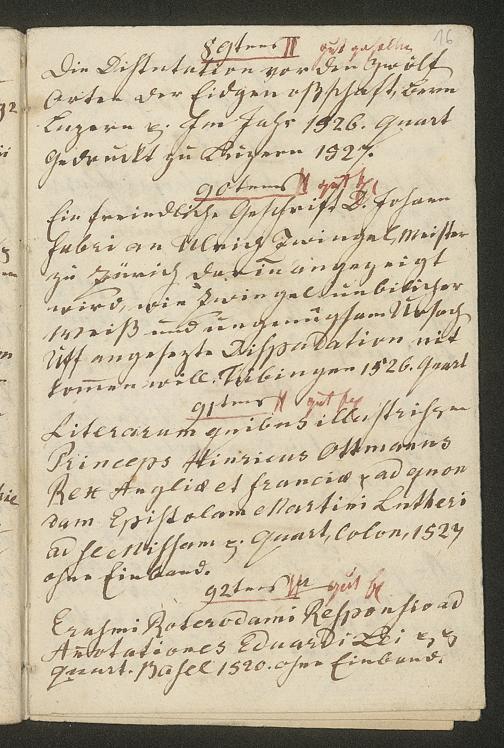 16
89tens II gut gehalten
Die Distutation vor den Zwölf
Orten der Eidgenoßschaft, Bern
Luzern &. Im Jahr 1526. Quart
Gedruckt zu Luzern 1527.
90tens gut
Ein freindliche Geschrift D. Johann
Fabri an Ulrich Zwingel, Meister
zu Zürich, darin angezeigt
wird, wie Zwingel unbilicher
Weiß und ungenugsam Ursach
Uff angesezte Disputation nit
kommen will. Tübingen 1526. Quart
91tens gut
Literarum quibus illustrissim
Princeps Hinricus Ottmanns
Rex Angliæ et franciæ & ad quon
dam Epistolam Martini Lutheri
ad se Missam &. Quart, Colon, 1527
ohne Einband.
92tens gut
Erasmi Roterodami Responsio ad
Annotationes Eduardi Lei & &
Quart. Basel 1520. ohne Einband.